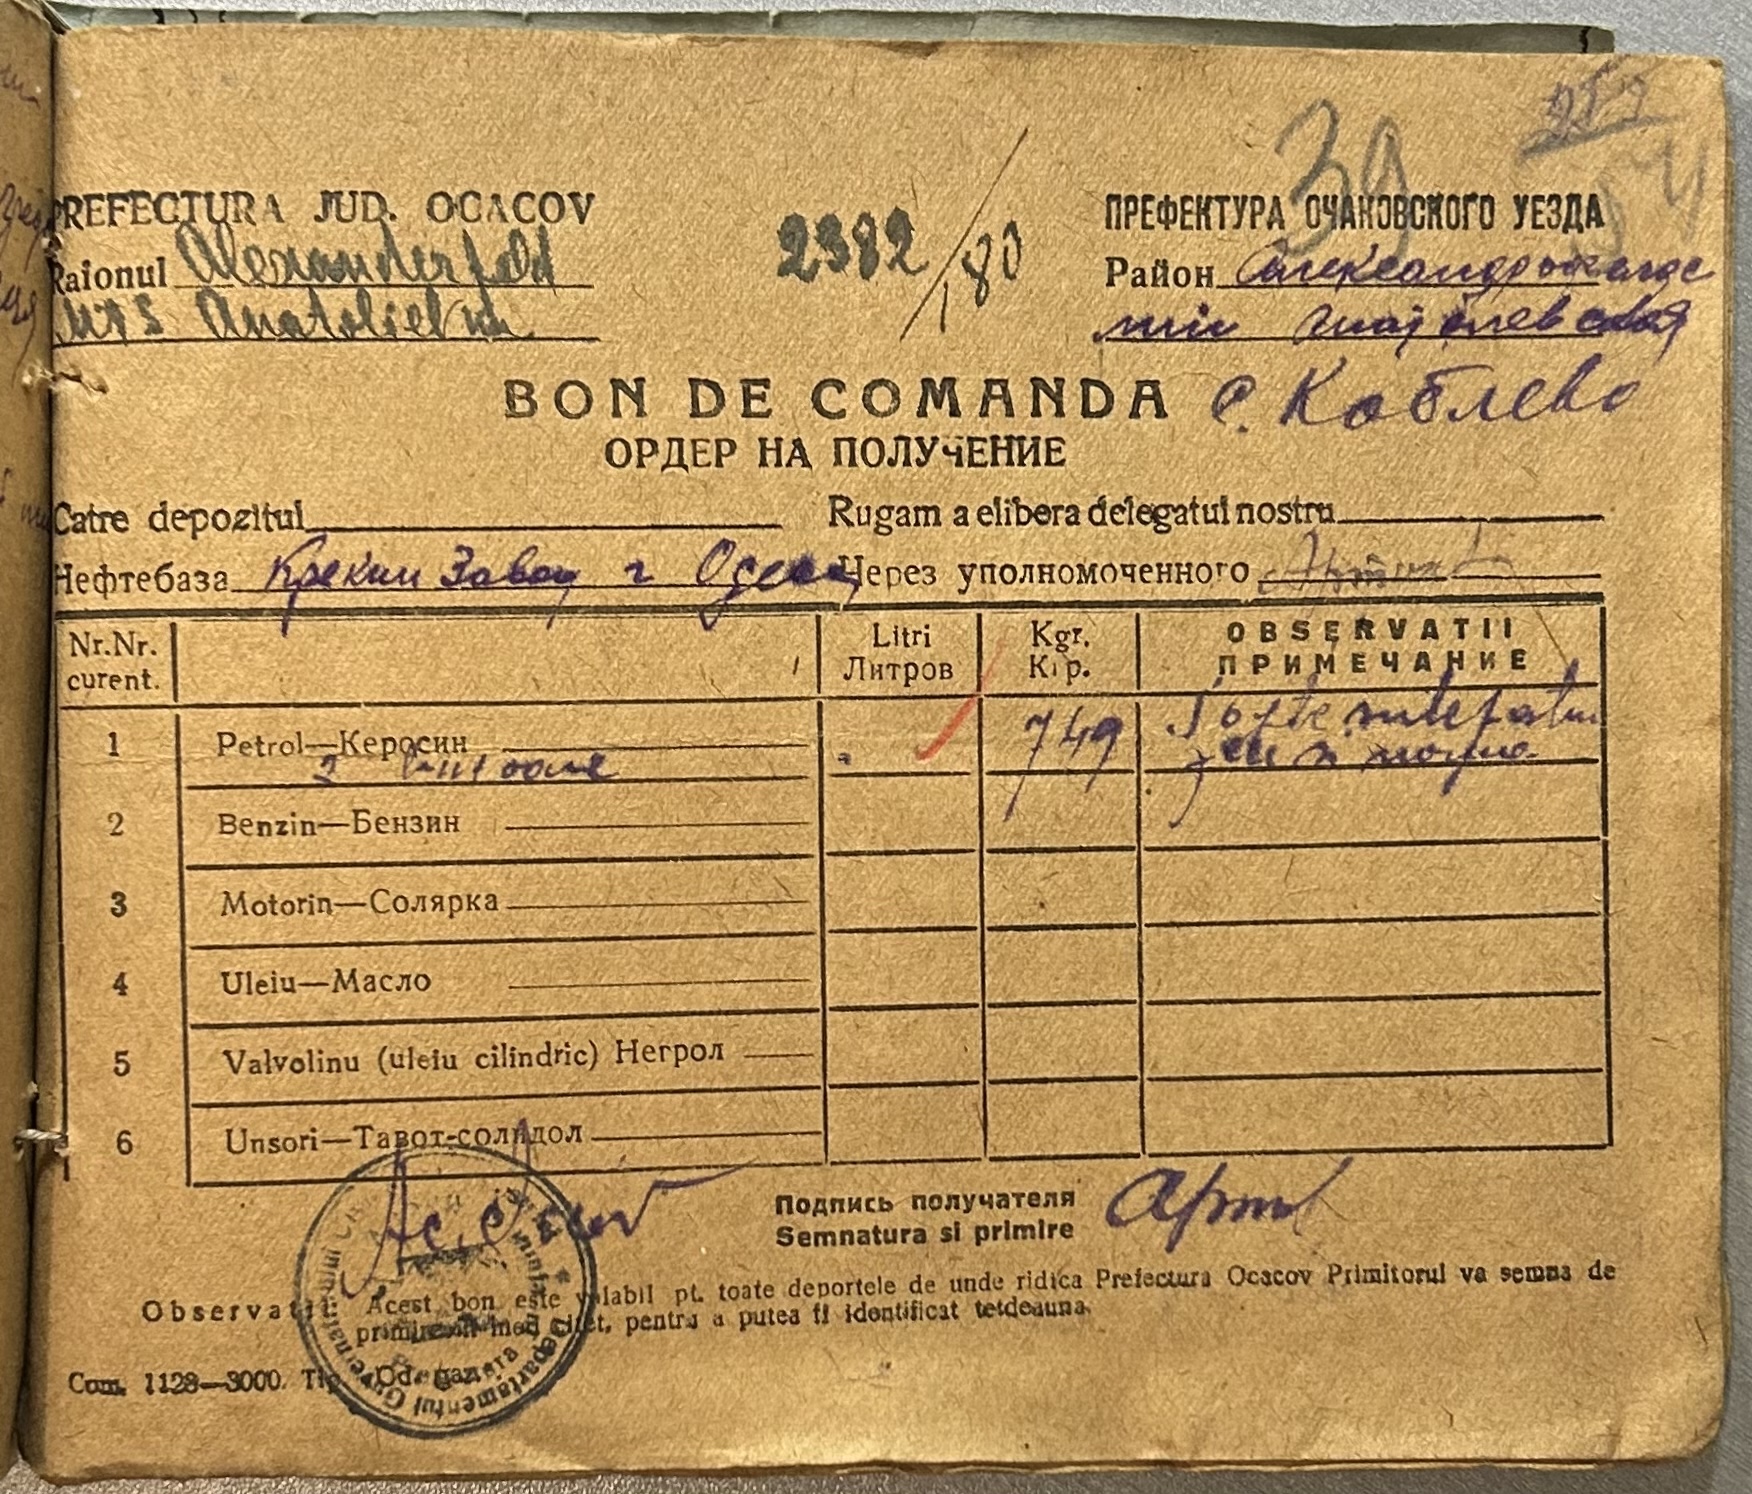 39
54
PREFECTURA JUD. OCACOV
2382/180
ПРЕФЕКТУРА ОЧАКОВСКОГО УЕЗДА
Raionul Alexanderfeld
Район
MTS
BON DE COMANDA с. Коблево
ОРДЕР НА ПОЛУЧЕНИЕ
Catre depozitul
Rugam a elibera delegatul nostru
Нефтебаза Крекин Завод г Одесса
Через уполномоченного
Nr. Nr. curent.
Litri Литров
Kgr. Кгр.
OBSERVATII ПРИМЕЧАНИЕ
1 Petrol—Керосин 749
2 Benzin—Бензин
3 Motorin—Солярка
4 Uleiu—Масло
5 Valvolinu (uleiu cilindric) Негрол
6 Unsori—Тавот-солидол
Подпись получателя
Semnatura si primire
Observatii: Acest bon este valabil pt. toate deportele de unde ridica Prefectura Ocacov Primitorul va semna de
pentru a putea fi identificat tetdeauna.
Com. 1128—3000. Tip.